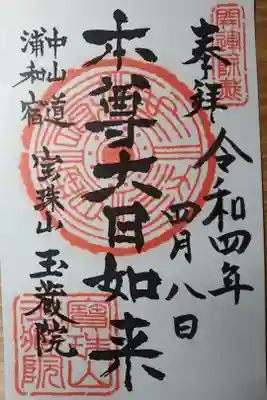 奉拝
令和四年
四月八日
本尊大日如来
中山道
浦和宿
宝珠山
玉蔵院
寶珠山